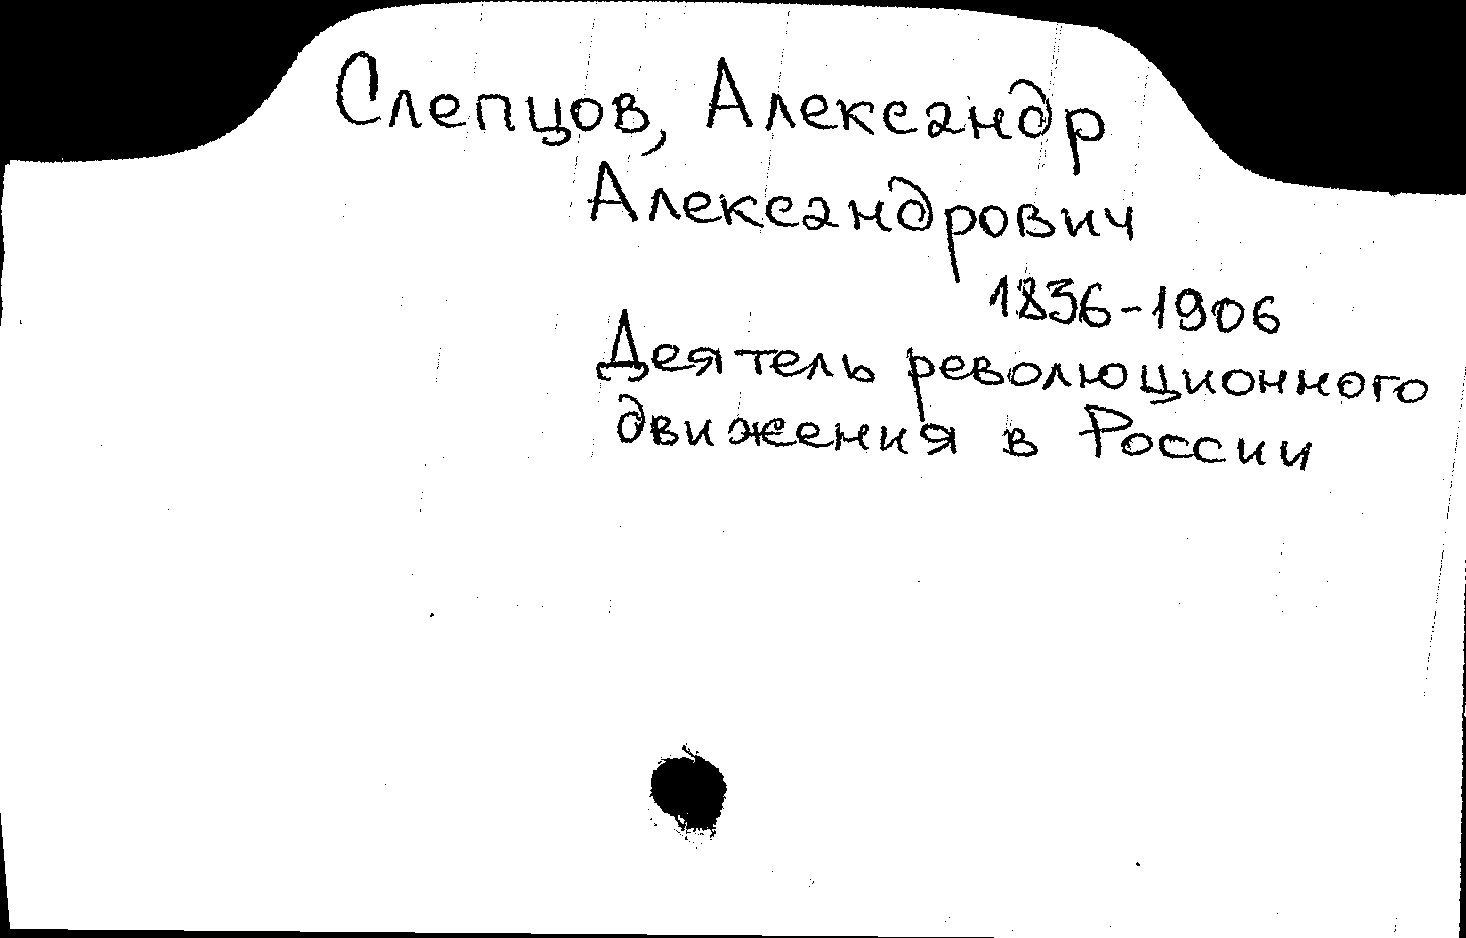 Слепцов, Александр
Александрович
1836-1906
Деятель революционного
движения в России